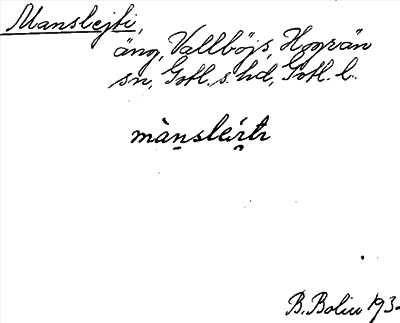 Manslejti,
äng, Vallböjs, Hogrän
sn, Gotl. s. hd, Gotl. l.
mànsleíti
B. Bolin 193